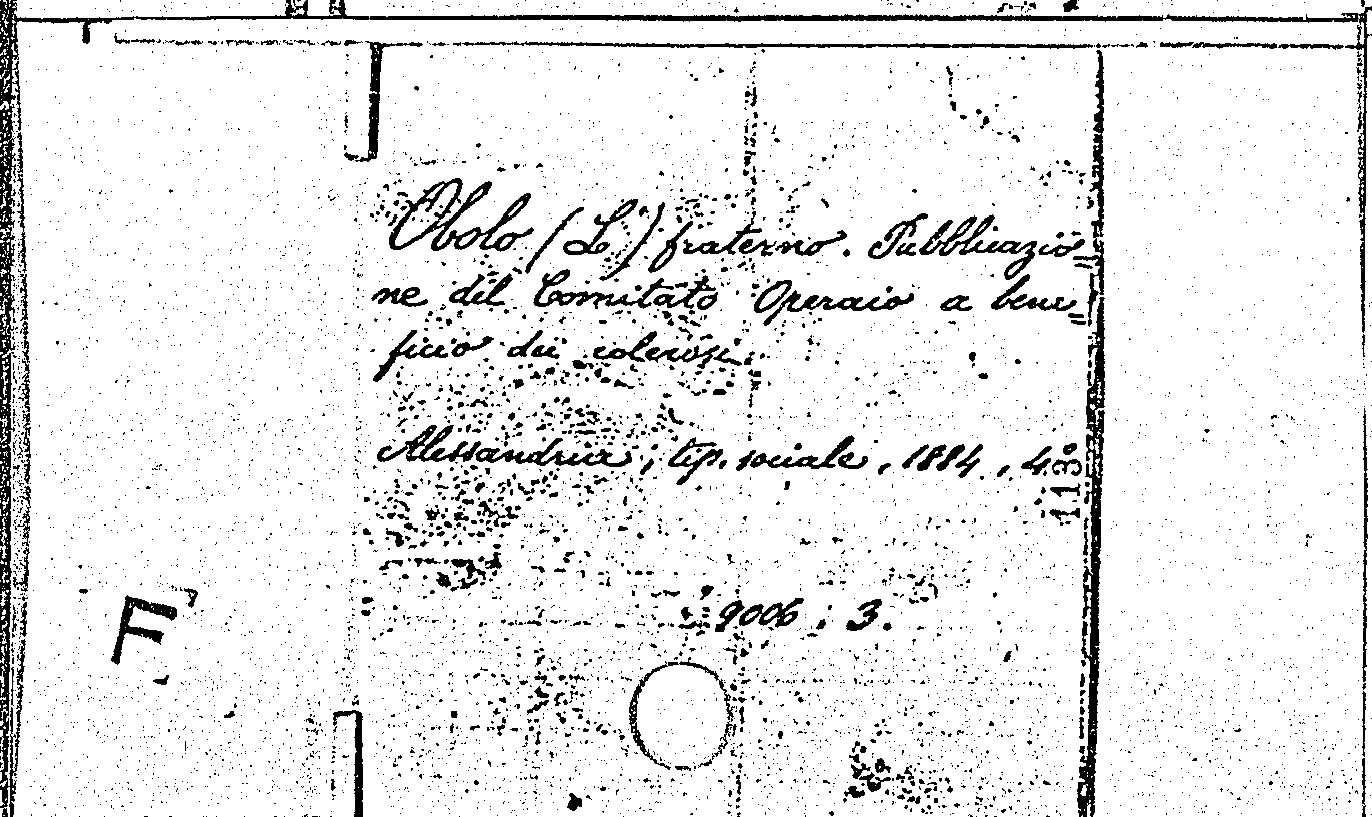 Obolo (L') fraterno. Pubblicazio=
ne del Comitato Operaio a bene=
ficio dei colerosi.
Alessandria, tip. sociale, 1884, 4º
113
9006 : 3.
F